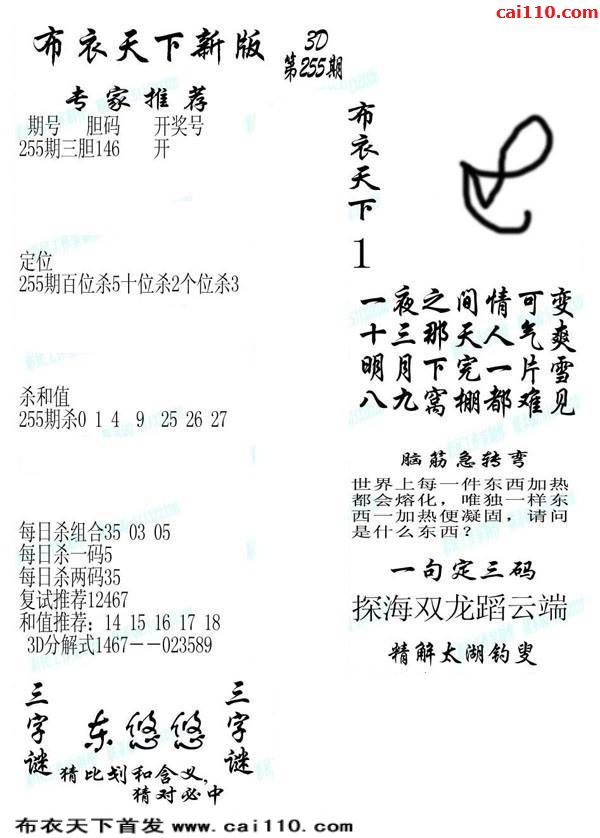 cai110.com
布衣天下新版
3D
第255期
专家推荐
期号 胆码 开奖号
255期三胆146 开
定位
255期百位杀5十位杀2个位杀3
杀和值
255期杀0 1 4 9 25 26 27
每日杀组合35 03 05
每日杀一码5
每日杀两码35
复试推荐12467
和值推荐: 14 15 16 17 18
3D分解式1467--023589
三字谜
东悠悠
三字谜
猜比划和含义,
猜对必中
布衣天下
1
一夜之间情可变
十三那天人气爽
明月下完一片雪
八九窝棚都难见
脑筋急转弯
世界上每一件东西加热
都会熔化，唯独一样东
西一加热便凝固，请问
是什么东西？
一句定三码
探海双龙蹈云端
精解太湖钓叟
布衣天下首发 www.cai110.com